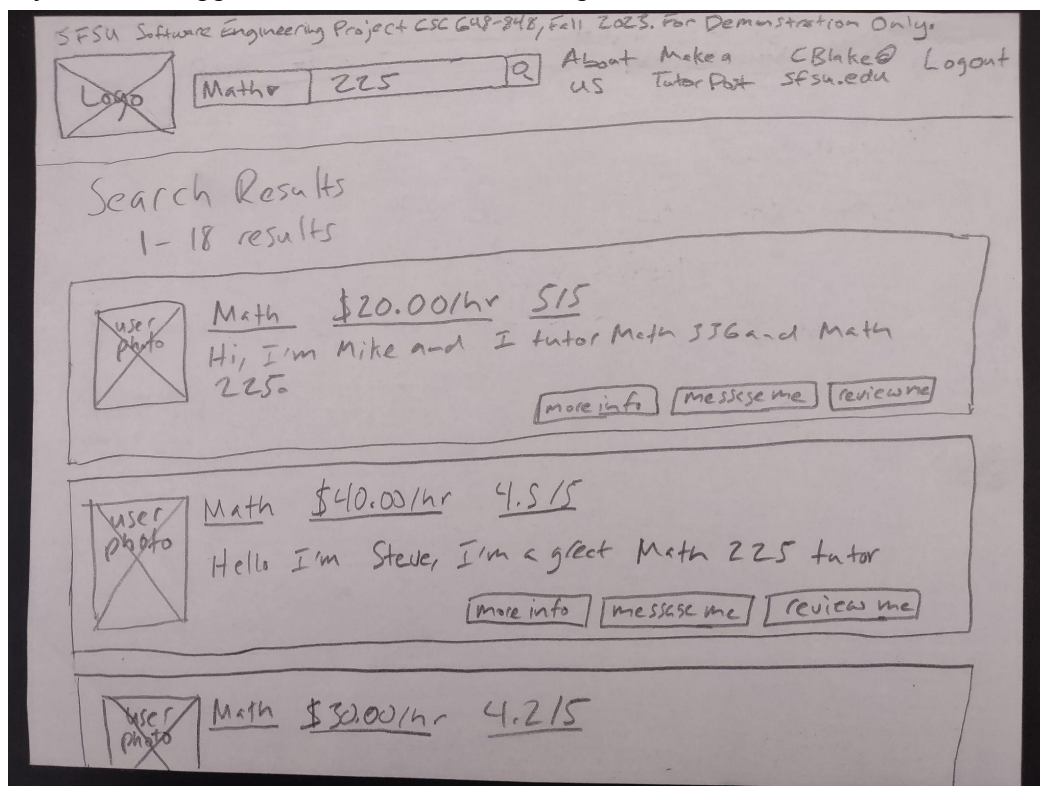 SFSU Software Engineering Project CSC 648-848, Fall 2023. For Demonstration Only.
Logo
Math▾ 225
About us
Make a Tutor Post
CBlake@sfsu.edu
Logout
Search Results
1-18 results
user photo
Math $20.00/hr 5/5
Hi, I'm Mike and I tutor Math 336 and Math
225.
more info message me review me
user photo
Math $40.00/hr 4.5/5
Hello I'm Steve, I'm a great Math 225 tutor
more info message me review me
user photo
Math $30.00/hr 4.2/5